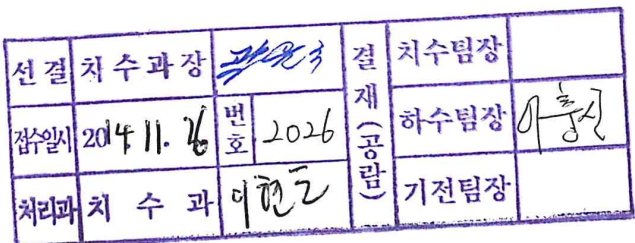 선결 치수과장 결재(공람) 치수팀장
접수일시 2014. 11. 26 번호 2026 하수팀장
처리과 치수과 이현도 기전팀장